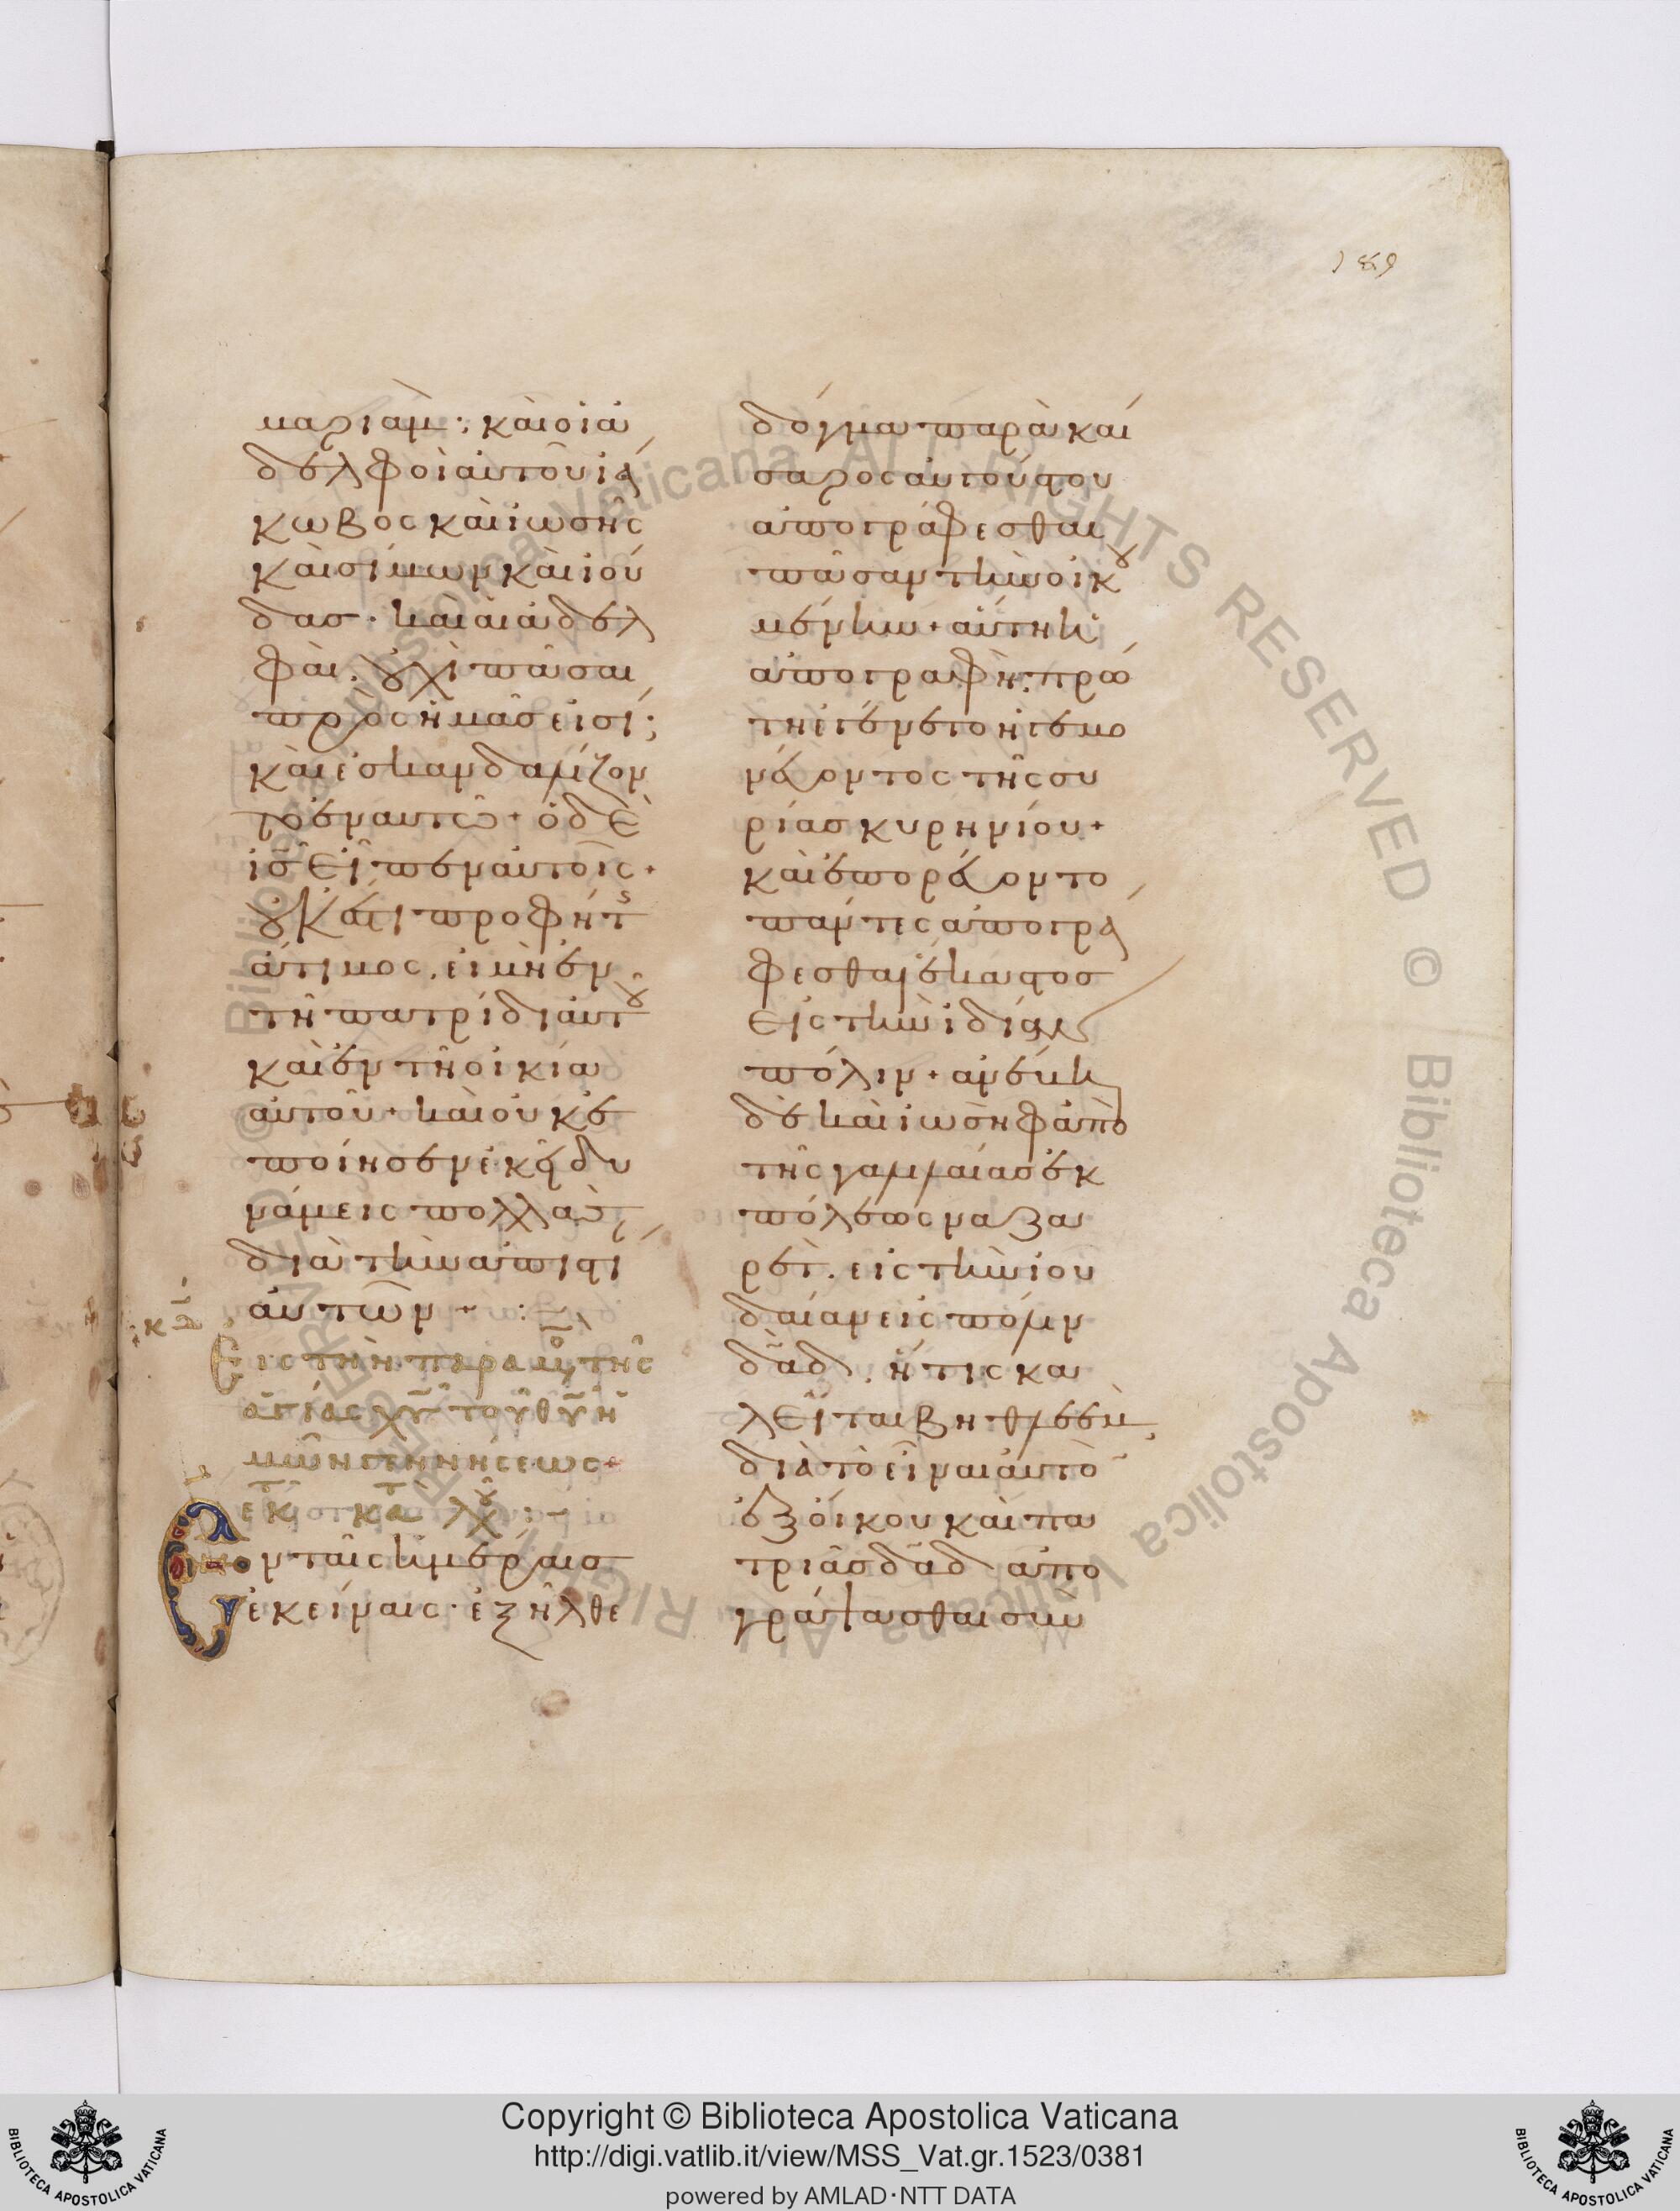 189
μαριάμ· καὶ οἱ ἀ
δελφοὶ αὐτοῦ ἰά
κωβος καὶ ἰωσῆς
καὶ σίμων καὶ ἰού
δας· καὶ αἱ ἀδελ
φαὶ. οὐχὶ πᾶσαι
πρὸς ἡμᾶς εἰσί;
καὶ ἐσκανδαλίζον
το ἐν αὐτῶ+ ὁ δὲ
ις εἶπεν αὐτοῖς+
οὐκ ἔστι προφήτης
ἄτιμος. εἰ μὴ ἐν
τῆ πατρίδι αὐτοῦ
καὶ ἐν τῆ οἰκία
αὐτοῦ+ καὶ οὐκ ἐ
ποίησεν ἐκεῖ δυ
νάμεις πολλὰς
διὰ τὴν ἀπιστί
αὐτῶν ~ :~
Εἰς τὴν παραμο τῆς
ἁγίας χυ τοῦ θυ ἡ
μῶν γεννήσεως+
ἐκ κατ λουχ :~
Εν ταῖς ἡμέραις
ἐκείναις· ἐξῆλθε
δόγμα παρὰ καί
σαρος αὐγούστου
ἀπογράφεσθαι
πᾶσαν τὴν οἰκου
μένην+ αὕτη ἡ
ἀπογραφὴ· πρώ
τη ἐγένετο ἡγεμο
νεύοντος τῆς συ
ρίας κυρηνίου+
καὶ ἐπορεύοντο
πάντες ἀπογρά
φεσθαι ἕκαστος
εἰς τὴν ἰδίαν
πόλιν+ ἀνέβη
δὲ καὶ ἰωσὴφ ἀπὸ
τῆς γαλιλαίας ἐκ
πόλεως ναζα
ρέτ. εἰς τὴν ἰου
δαίαν εἰς πόλιν
δαδ. ἥτις κα
λεῖται βηθλεέμ
διὰ τὸ εἶναι αὐτὸ
ἐξ οἴκου καὶ πα
τριᾶς δαδ ἀπο
γράψασθαι σὺν
Copyright © Biblioteca Apostolica Vaticana
http://digi.vatlib.it/view/MSS_Vat.gr.1523/0381
powered by AMLAD·NTT DATA
BIBLIOTECA APOSTOLICA VATICANA
BIBLIOTECA APOSTOLICA VATICANA